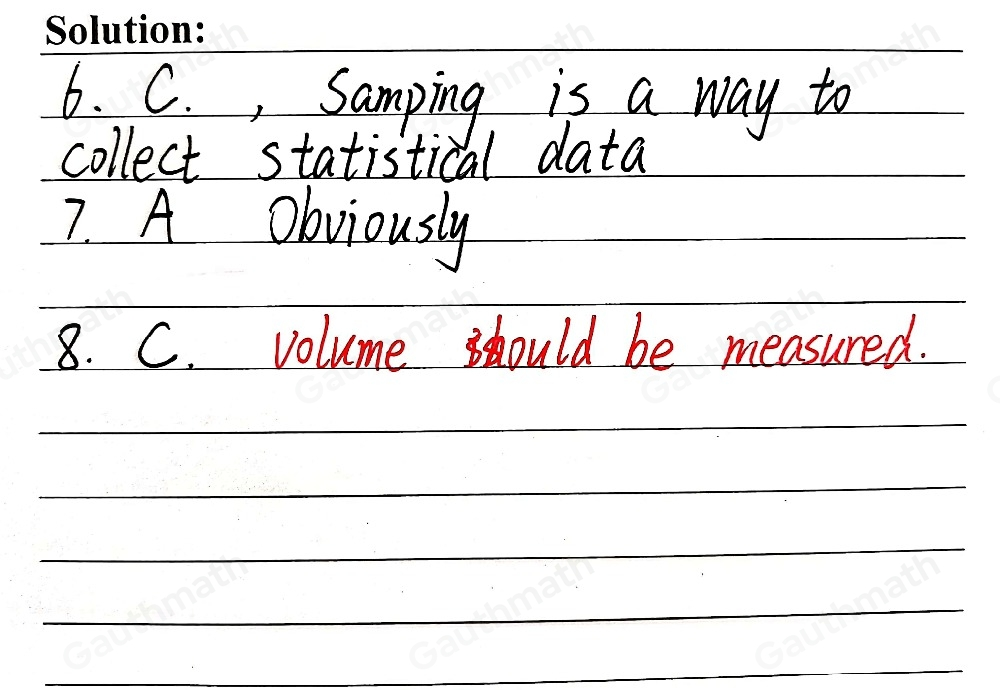 Solution:
6. C. , Samping is a way to
collect statistical data
7. A Obviously
8. C. volume should be measured.
Gauthmath
Gauthmath
Gauthmath